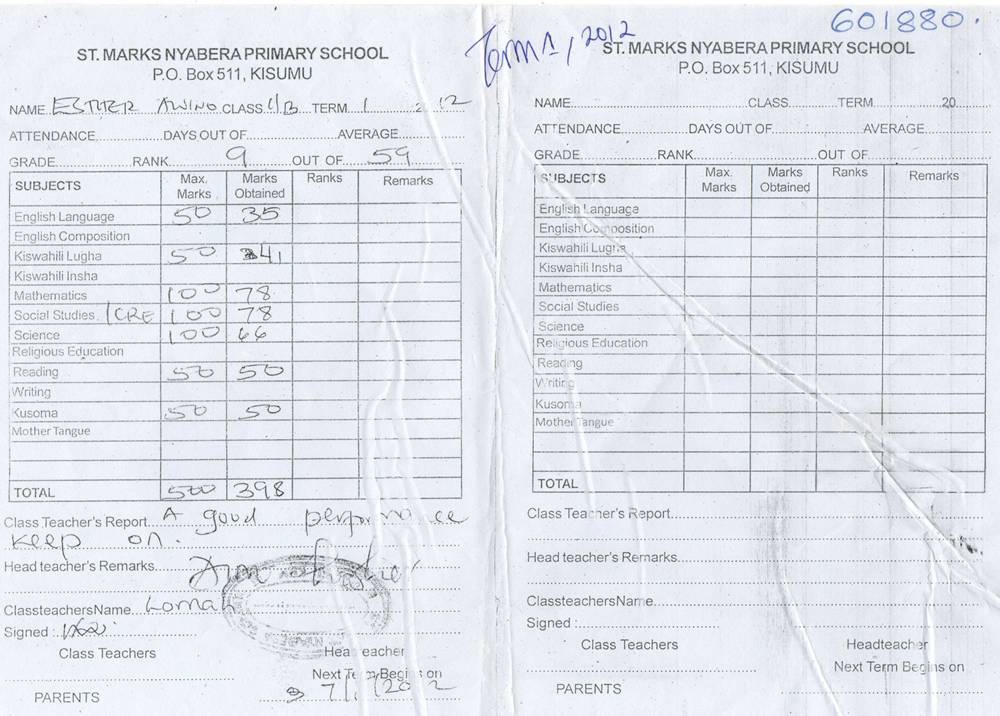 601880.
Term 1, 2012
ST. MARKS NYABERA PRIMARY SCHOOL
P.O. Box 511, KISUMU
NAME ESTHER AWINO CLASS 4B TERM 1 2 12
ATTENDANCE DAYS OUT OF AVERAGE
GRADE RANK 9 OUT OF 59
SUBJECTS Max. Marks Marks Obtained Ranks Remarks
English Language 50 35
English Composition
Kiswahili Lugha 50 41
Kiswahili Insha
Mathematics 100 78
Social Studies /CRE 100 78
Science 100 66
Religious Education
Reading 50 50
Writing
Kusoma 50 50
Mother Tangue
TOTAL 500 398
Class Teacher's Report A good performance
keep on.
Head teacher's Remarks Aim
ClassteachersName Lornah
Signed :
Class Teachers Headteacher
Next Term Begins on
PARENTS 2012
ST. MARKS NYABERA PRIMARY SCHOOL
P.O. Box 511, KISUMU
NAME CLASS TERM 20
ATTENDANCE DAYS OUT OF AVERAGE
GRADE RANK OUT OF
SUBJECTS Max. Marks Marks Obtained Ranks Remarks
English Language
English Composition
Kiswahili Lugha
Kiswahili Insha
Mathematics
Social Studies
Science
Religious Education
Reading
Writing
Kusoma
Mother Tangue
TOTAL
Class Teacher's Report
Head teacher's Remarks
ClassteachersName
Signed :
Class Teachers Headteacher
Next Term Begins on
PARENTS